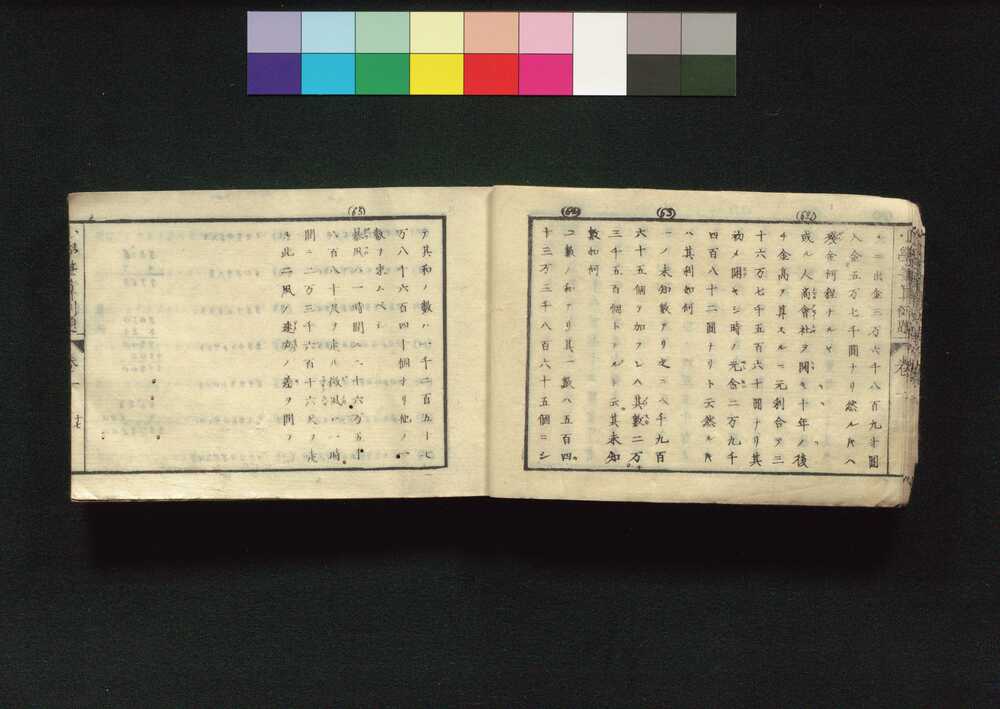 ニ出金三万六千八百九十圓
入金五万七千圓ナリ然ル片ハ
殘金何程ナルヤ
(62)
或ル人商會社ヲ開キ十年ノ後
チ金高ヲ算スルニ元利合テ三
十六万七千五百六十圓ナリ其
初メ開キシ時ノ元金二万九千
四百八十二圓ナリト云然ル片
ハ其利如何
(63)
一ノ未知數アリ之ニ八千九百
六十五個ヲ加フレハ其數二万
三千五百個トナルト云其未知
數如何
(64)
二數ノ和アリ其一數ハ五百四
十三万三千八百六十五個ニシ
テ其和ノ數ハ一千二百五十七
万八千六百四十個ナリ他ノ一
數ヲ求ムベシ
(65)
暴風ハ一時間ヘ二十六万五千
八百八十尺ヲ走ル微風ハ一時
間ニ二万三千六百十六尺ヲ走
ル此二風ノ速力ノ差ヲ問フ